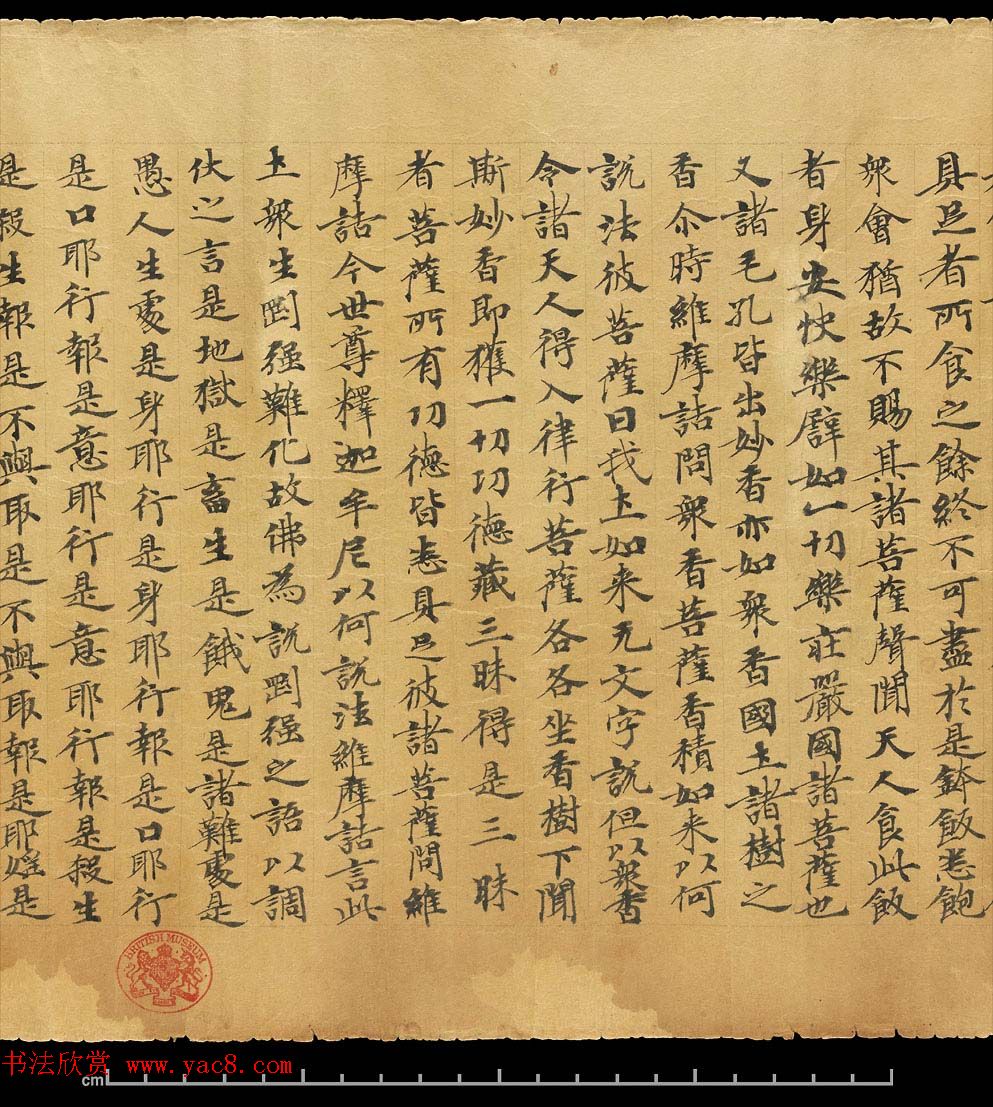 具足者所食之餘終不可盡於是鉢飯悉飽
眾會猶故不賜其諸菩薩聲聞天人食此飯
者身安快樂譬如一切樂莊嚴國諸菩薩也
又諸毛孔皆出妙香亦如眾香國土諸樹之
香尒時維摩詰問眾香菩薩香積如来以何
說法彼菩薩曰我土如来无文字說但以眾香
令諸天人得入律行菩薩各各坐香樹下聞
斯妙香即獲一切功德藏三昧得是三昧
者菩薩所有功德皆悉具足彼諸菩薩問維
摩詰今世尊釋迦牟尼以何說法維摩詰言此
土眾生剛强難化故佛為說剛强之語以調
伏之言是地獄是畜生是餓鬼是諸難處是
愚人生處是身耶行是身耶行報是口耶行
是口耶行報是意耶行是意耶行報是殺生
是殺生報是不與取是不與取報是耶婬是
BRITISH MUSEUM
书法欣赏 www.yac8.com
cm